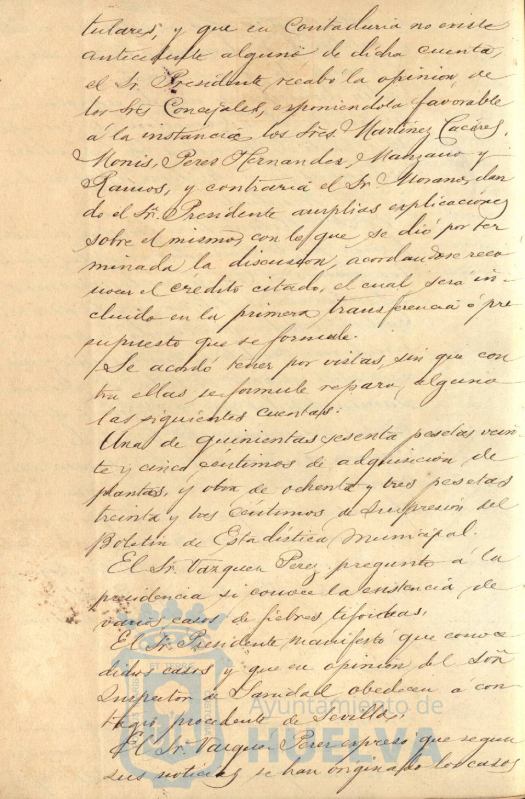 tulares, y que en Contaduria no existe
antecedente alguno de dicha cuenta,
el Sr. Presidente, recabó la opinion, de
los Sres Concejales, esponiendola favorable
á la instancia los Sres. Martinez Cacéres,
Monis, Peres Hernandez, Manzano y
Ramos, y contraria el Sr. Morano, dan
do el Sr. Presidente amplias esplicaciones
sobre el mismo, con lo que se dió por ter
minada la discusion, acordandose reco
nocer el crédito citado, el cual será in-
cluido en la primera transferencia ó pre
supuesto que se formule.
Se acordó tener por vistas, sin que con
tra ellas se formule reparo, alguno
las siguientes cuentas:
Una de quinientas sesenta pesetas vein
te y cinco céntimos de adquisicion de
plantas, y otra de ochenta y tres pesetas
treinta y tres centimos de impresión del
Boletin de Estadística Municipal.
El Sr. Vazquez Perez preguntó á la
presidencia si conoce la existencia de
varios casos de fiebres tifoideas.
El Sr. Presidente manifestó que conoce
dichos casos y que en opinion del Señor
Inspector de Sanidad obedecen á con
tagio procedente de Sevilla.
El Sr. Vazquez Perez expresó que segun
sus noticias se han originado los casos
Ayuntamiento de
HUELVA